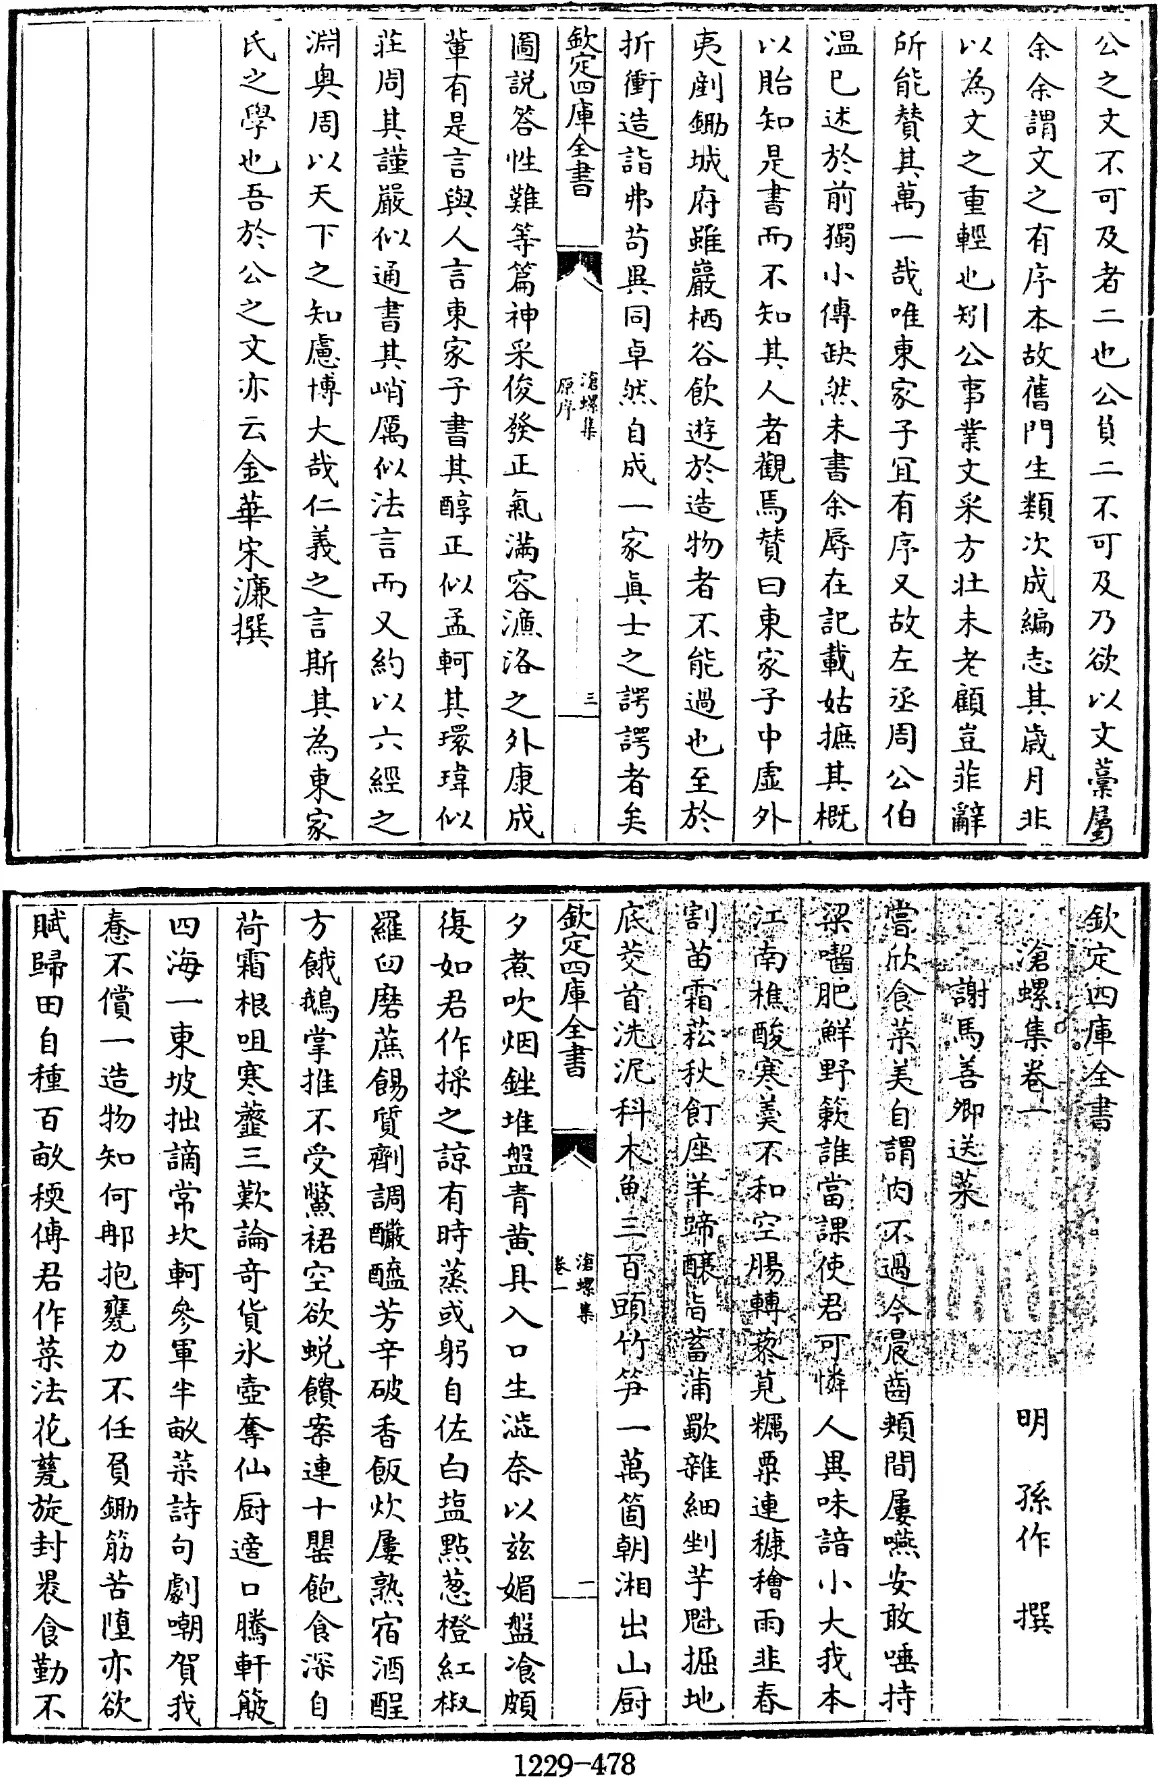 公之文不可及者二也公負二不可及乃欲以文藁屬
余余謂文之有序本故舊門生類次成編志其歲月非
以為文之重輕也矧公事業文采方壯未老顧豈菲辭
所能賛其萬一哉唯東家子宜有序又故左丞周公伯
温已述於前獨小傳缺然未書余辱在記載姑摭其概
以貽知是書而不知其人者觀焉賛曰東家子中虚外
夷剷鋤城府雖巖栖谷飲遊於造物者不能過也至於
折衝造詣弗茍異同卓然自成一家真士之諤諤者矣
欽定四庫全書
滄螺集
原序
三
圖說答性難等篇神采俊發正氣滿容濂洛之外康成
輩有是言與人言東家子書其醇正似孟軻其環瑋似
莊周其謹嚴似通書其峭厲似法言而又約以六經之
淵奥周以天下之知慮博大哉仁義之言斯其為東家
氏之學也吾於公之文亦云金華宋濂撰
欽定四庫全書
滄螺集卷一
明 孫作 撰
謝馬善卿送菜
嘗欣食菜美自謂肉不過今晨齒頰間屢嚥安敢唾持
粱囓肥鮮野蔌誰當課使君可憐人異味諳小大我本
江南樵酸寒羮不和空腸轉藜莧糲粟連穅穭雨韭春
割苗霜菘秋飣座羊蹄釀旨蓄蒲歜雜細剉芋魁掘地
底茭首洗泥科木魚三百頭竹笋一萬箇朝湘出山厨
欽定四庫全書
滄螺集
卷一
二
夕煮吹烟銼堆盤青黄具入口生澁奈以兹媚盤飡頗
復如君作採之諒有時蒸或躬自佐白塩點葱橙紅椒
羅臼磨蔗餳質劑調釅醯芳辛破香飯炊屢熟宿酒酲
方餓鵝掌推不受鱉裙空欲蜕饋案連十罌飽食深自
荷霜根咀寒虀三歎論奇貨氷壺奪仙厨適口騰軒簸
四海一東坡拙謫常坎軻參軍半畝菜詩句劇嘲賀我
惷不償一造物知何那抱甕力不任負鋤筋苦墮亦欲
賦歸田自種百畝稉傳君作菜法花甆旋封裹食勤不
1229-478